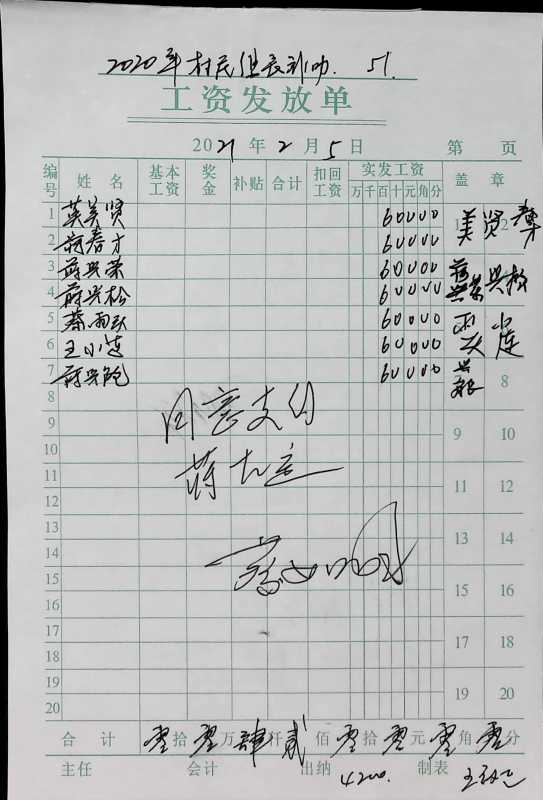 2020年村民组长补助. 51.
工资发放单
2021年2月5日 第 页
编号 姓名 基本工资 奖金 补贴 合计 扣回工资 实发工资 万千百十元角分 盖章
1 英美贤 60000 美贤
2 蒋春才 60000
3 蒋兴荣 60000 蒋兴荣
4 蒋兴松 60000 兴松
5 蔡雨跃 60000
6 王小莲 60000 小莲
7 蒋兴 60000 兴
8 8
9 9 10
10
11 11 12
12
13 13 14
14
15 15 16
16
17 17 18
18
19 19 20
20
同意支付
蒋
合计 零拾零万肆仟贰佰零拾零元零角零分
主任 会计 出纳 制表
4200.